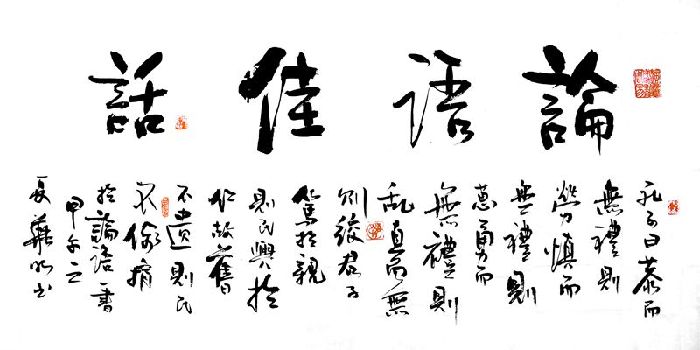 論语佳話
孔子曰恭而
無禮則
勞慎而
無禮則
葸勇而
無禮則
乱直而無
則絞君子
篤於親
則民興於
仁故舊
不遺則民
不偷摘
於論語一書
甲午之
夏 书